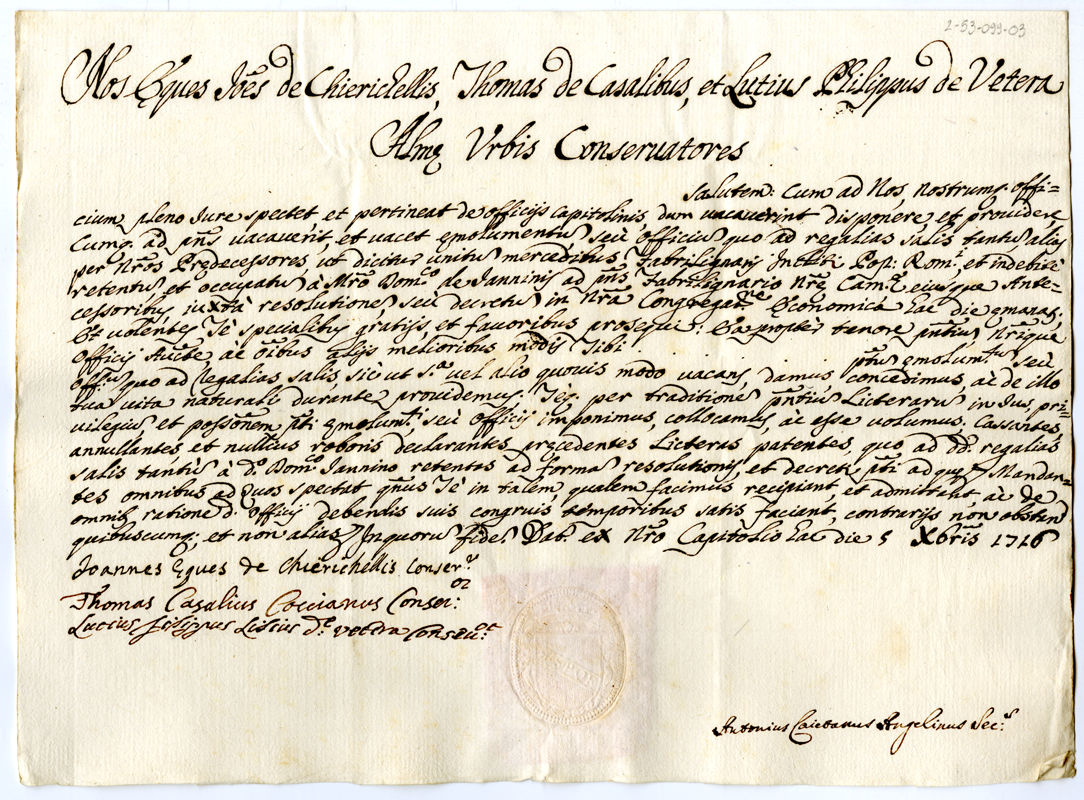 2-53-099-03
Nos Eques Joẽs de Chierichellis, Thomas de Casalibus, et Lutius Philippus de Vetera
Almę Vrbis Conseruatores
Salutem: Cum ad Nos, nostrumq. offi=
cium pleno Jure spectet et pertineat de officijs capitolinis, dum vacauerint disponere, et prouidere
Cumq. ad pñs uacauerit, et vacet emolumentũ seù officiũ quo ad regalias salis tantũ alias
per Nr̃os Predecessores, ut dicitur unitũ mercedibus Fabrilignarij Incliti Pop: Rom: et indebitè
retentũ et occupatũ à Mr̃o Dom.co de Janninis ad pñs Fabrilignario Nr̃ę Cam.ę eiusque Ante=
cessoribus, iuxtà resolutionẽ, seù decretũ in Nr̃a Congregat.ne Economica hac die emanaꝭ
Et volentes Te specialibus gratijs, et fauoribus prosequi: Ea propter tenore pñtiũ, Nr̃ique
Officij Aucte ac oĩbus alijs melioribus modis Tibi
pñs emolumtũ seù
Offũ quo ad Regalias salis, sic ut sa vel alio quouis modo vacans, damus concedimus, ac de illo
tua vita naturali durante prouidemus; Teq. per traditionẽ pñtiũ Licterarũ in Jus, pri=
uilegiũ et possõnem pti emolumti, seù officij imponimus, collocamus, ac esse volumus. Cassantes,
annullantes, et nullius roboris declarantes precedentes Licteras patentes, quo ad dd. regalias
salis tantũ à do Domco Jannino retentas ad formã resolutionis, et decreti pti ad quę Mandan=
tes omnibus ad quos spectat qñus Te in talem, qualem facimus recipiant, et admittant, ac de
omnibꝭ ratione d. officij debendis suis congruis temporibus satis faciant, contrarijs non obstanꝭ
quibuscumq; et non alias. In quorũ fidẽ Dat. ex Nr̃o Capitolio hac die 5 Xbris 1716
Joannes Eques de Chierichellis Conser.r
Thomas Casalius Coccianus Conser.or
Lutius Filippus Liscius de Vetera Conseu.or
Antonius Caietanus Angelinus Sec.s